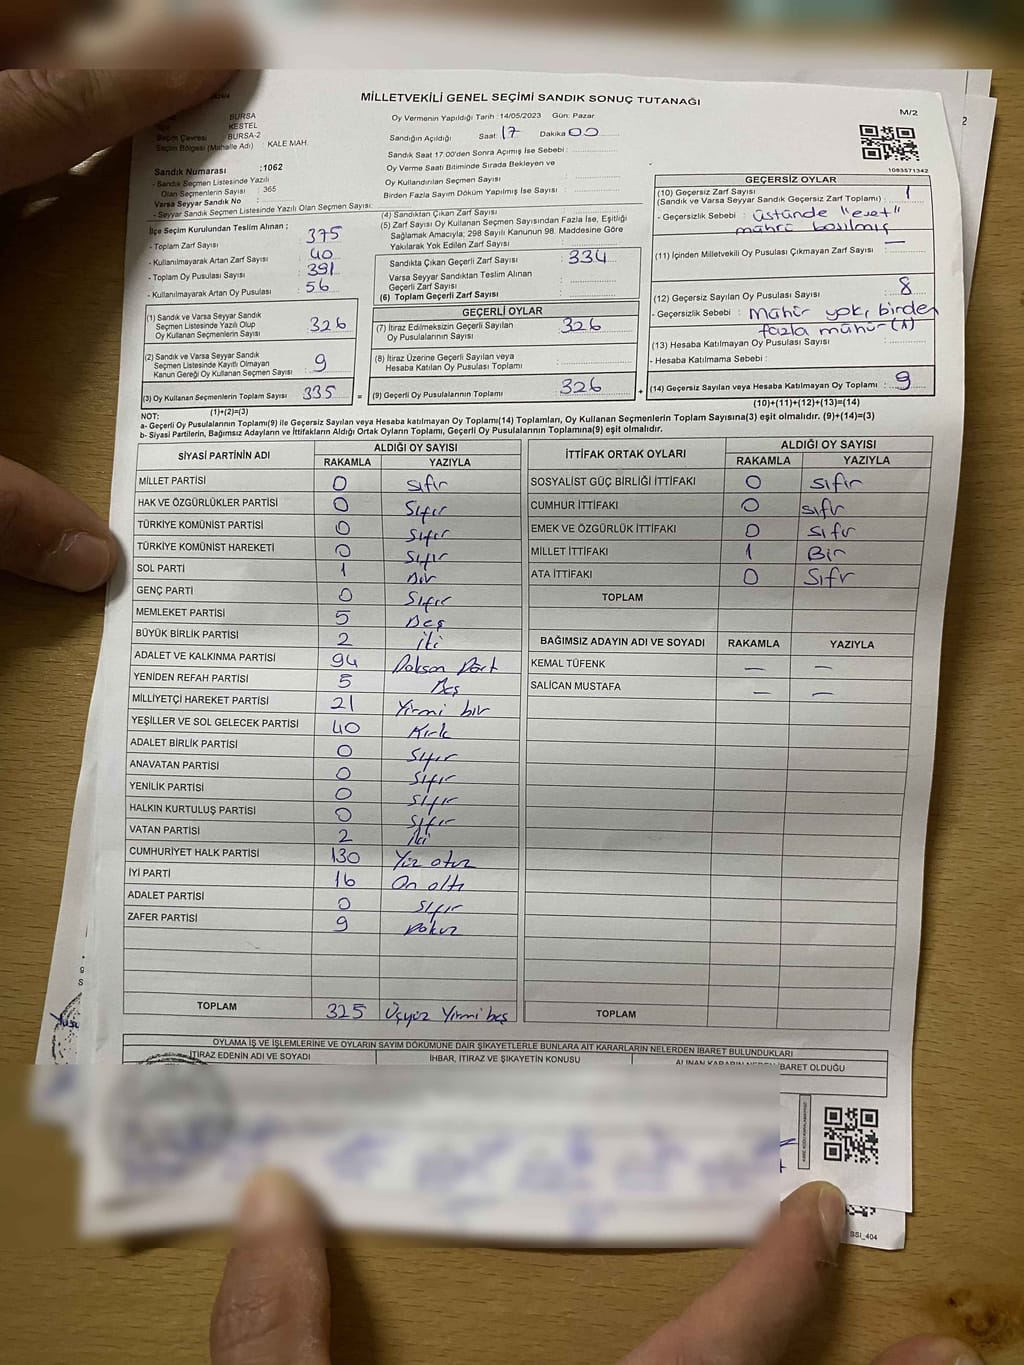 MİLLETVEKİLİ GENEL SEÇİMİ SANDIK SONUÇ TUTANAĞI
M/2
BURSA
KESTEL
Seçim Çevresi : BURSA-2
Seçim Bölgesi (Mahalle Adı) : KALE MAH.
Sandık Numarası :1062
- Sandık Seçmen Listesinde Yazılı
Olan Seçmenlerin Sayısı : 365
Varsa Seyyar Sandık No :
- Seyyar Sandık Seçmen Listesinde Yazılı Olan Seçmen Sayısı:
İlçe Seçim Kurulundan Teslim Alınan ;
- Toplam Zarf Sayısı : 375
- Kullanılmayarak Artan Zarf Sayısı : 40
- Toplam Oy Pusulası Sayısı : 391
- Kullanılmayarak Artan Oy Pusulası : 56
(1) Sandık ve Varsa Seyyar Sandık
Seçmen Listesinde Yazılı Olup
Oy Kullanan Seçmenlerin Sayısı : 326
(2) Sandık ve Varsa Seyyar Sandık
Seçmen Listesinde Kayıtlı Olmayan
Kanun Gereği Oy Kullanan Seçmen Sayısı : 9
(3) Oy Kullanan Seçmenlerin Toplam Sayısı : 335
(1)+(2)=(3)
Oy Vermenin Yapıldığı Tarih : 14/05/2023 Gün: Pazar
Sandığın Açıldığı Saat: 17 Dakika 00
Sandık Saat 17:00'den Sonra Açımış İse Sebebi :
Oy Verme Saati Bitiminde Sırada Bekleyen ve
Oy Kullandırılan Seçmen Sayısı :
Birden Fazla Sayım Döküm Yapılmış İse Sayısı :
(4) Sandıktan Çıkan Zarf Sayısı :
(5) Zarf Sayısı Oy Kullanan Seçmen Sayısından Fazla İse, Eşitliği
Sağlamak Amacıyla; 298 Sayılı Kanunun 98. Maddesine Göre
Yakılarak Yok Edilen Zarf Sayısı :
Sandıkta Çıkan Geçerli Zarf Sayısı : 334
Varsa Seyyar Sandıktan Teslim Alınan
Geçerli Zarf Sayısı :
(6) Toplam Geçerli Zarf Sayısı :
GEÇERLİ OYLAR
(7) İtiraz Edilmeksizin Geçerli Sayılan
Oy Pusulası Sayısı : 326
(8) İtiraz Üzerine Geçerli Sayılan veya
Hesaba Katılan Oy Pusulası Toplamı :
= (9) Geçerli Oy Pusulalarının Toplamı : 326 +
1093571342
GEÇERSİZ OYLAR
(10) Geçersiz Zarf Sayısı : 1
(Sandık ve Varsa Seyyar Sandık Geçersiz Zarf Toplamı)
- Geçersizlik Sebebi : üstünde "evet"
mührü basılmış
(11) İçinden Milletvekili Oy Pusulası Çıkmayan Zarf Sayısı : —
(12) Geçersiz Sayılan Oy Pusulası Sayısı : 8
- Geçersizlik Sebebi : Mühür yok, birden
fazla mühür (A)
(13) Hesaba Katılmayan Oy Pusulası Sayısı :
- Hesaba Katılmama Sebebi :
(14) Geçersiz Sayılan veya Hesaba Katılmayan Oy Toplamı : 9
(10)+(11)+(12)+(13)=(14)
NOT:
a- Geçerli Oy Pusulalarının Toplamı(9) ile Geçersiz Sayılan veya Hesaba katılmayan Oy Toplamı(14) Toplamları, Oy Kullanan Seçmenlerin Toplam Sayısına(3) eşit olmalıdır. (9)+(14)=(3)
b- Siyasi Partilerin, Bağımsız Adayların ve İttifakların Aldığı Ortak Oyların Toplamı, Geçerli Oy Pusulalarının Toplamına(9) eşit olmalıdır.
SİYASİ PARTİNİN ADI ALDIĞI OY SAYISI
RAKAMLA YAZIYLA
MİLLET PARTİSİ 0 sıfır
HAK VE ÖZGÜRLÜKLER PARTİSİ 0 Sıfır
TÜRKİYE KOMÜNİST PARTİSİ 0 Sıfır
TÜRKİYE KOMÜNİST HAREKETİ 0 Sıfır
SOL PARTİ 1 Bir
GENÇ PARTİ 0 Sıfır
MEMLEKET PARTİSİ 5 Beş
BÜYÜK BİRLİK PARTİSİ 2 İki
ADALET VE KALKINMA PARTİSİ 94 Doksan Dört
YENİDEN REFAH PARTİSİ 5 Beş
MİLLİYETÇİ HAREKET PARTİSİ 21 Yirmi bir
YEŞİLLER VE SOL GELECEK PARTİSİ 40 Kırk
ADALET BİRLİK PARTİSİ 0 Sıfır
ANAVATAN PARTİSİ 0 Sıfır
YENİLİK PARTİSİ 0 Sıfır
HALKIN KURTULUŞ PARTİSİ 0 Sıfır
VATAN PARTİSİ 2 İki
CUMHURİYET HALK PARTİSİ 130 Yüz otuz
İYİ PARTİ 16 On altı
ADALET PARTİSİ 0 Sıfır
ZAFER PARTİSİ 9 Dokuz
TOPLAM 325 Üçyüz Yirmi beş
İTTİFAK ORTAK OYLARI ALDIĞI OY SAYISI
RAKAMLA YAZIYLA
SOSYALİST GÜÇ BİRLİĞİ İTTİFAKI 0 sıfır
CUMHUR İTTİFAKI 0 sıfır
EMEK VE ÖZGÜRLÜK İTTİFAKI 0 sıfır
MİLLET İTTİFAKI 1 Bir
ATA İTTİFAKI 0 Sıfır
TOPLAM
BAĞIMSIZ ADAYIN ADI VE SOYADI RAKAMLA YAZIYLA
KEMAL TÜFENK — —
SALİCAN MUSTAFA — —
TOPLAM
OYLAMA İŞ VE İŞLEMLERİNE VE OYLARIN SAYIM DÖKÜMÜNE DAİR ŞİKAYETLERLE BUNLARA AİT KARARLARIN NELERDEN İBARET BULUNDUKLARI
İTİRAZ EDENİN ADI VE SOYADI İHBAR, İTİRAZ VE ŞİKAYETİN KONUSU ALINAN KARARIN NEDEN İBARET OLDUĞU
SSI_404